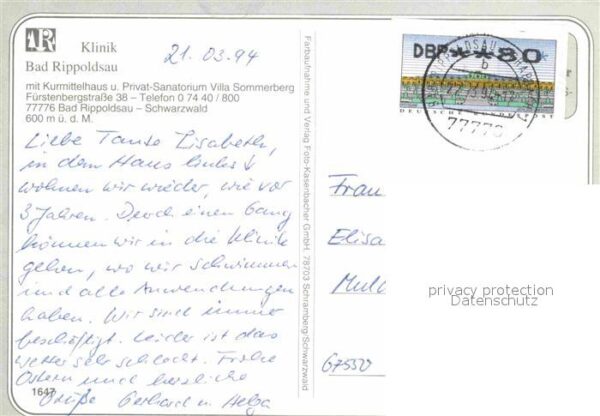 Klinik
Bad Rippoldsau
mit Kurmittelhaus u. Privat-Sanatorium Villa Sommerberg
Fürstenbergstraße 38 – Telefon 0 74 40 / 800
77776 Bad Rippoldsau – Schwarzwald
600 m ü. d. M.
21.03.94
Liebe Tante Elisabeth,
in dem Haus links ↓
wohnen wir wieder, wie vor
3 Jahren. Durch einen Gang
können wir in die Klinik
gehen, wo wir schwimmen
und alle Anwendungen
haben. Wir sind immer
beschäftigt. Leider ist das
Wetter sehr schlecht. Frohe
Ostern und herzliche
Grüße Gerhard u. Helga
1647
Farbaufnahme und Verlag Foto-Kasenbacher GmbH, 78703 Schramberg/Schwarzwald
DBP 80
DEUTSCHE BUNDESPOST
77776
Frau
Elisa
67550
privacy protection
Datenschutz